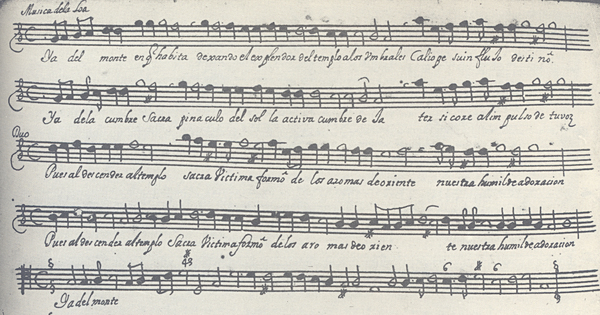 Musica dela Loa
Ya del monte en q̃ habita dexando el esplendor del templo a los Vmbrales Caliope su influso destinò.
Ya dela cumbre Sacra pinaculo del sol la activa cumbre de la
Duo
Pues al descender al templo sacra Victima formò de los aromas de oriente nuestra humilde adoracion
Pues al descender al templo Sacra Victima formò de los aro mas de orien te nuestra humilde adoracion
4
6 6
Ya del monte